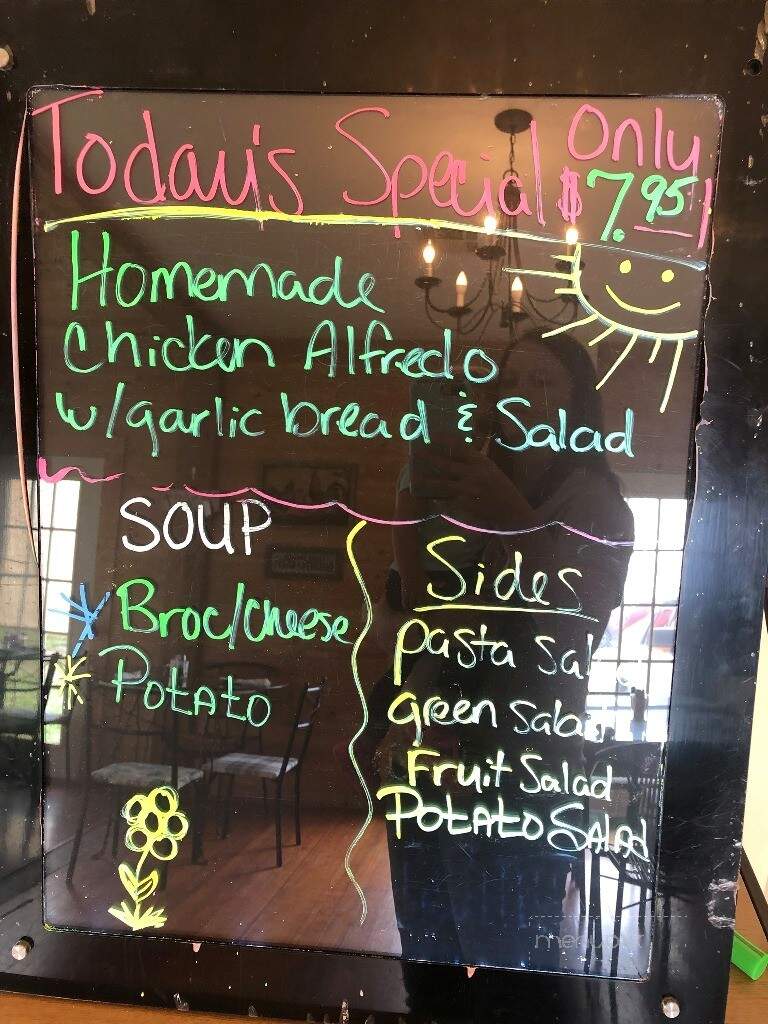 Today's Special Only
$7.95
Homemade
Chicken Alfredo
w/garlic bread & Salad
SOUP
Broc/cheese
Potato
Sides
pasta Salad
green Salad
Fruit Salad
Potato Salad